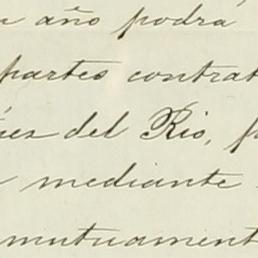 año podrá
partes contrat
del Rio,
mediante
mutuament